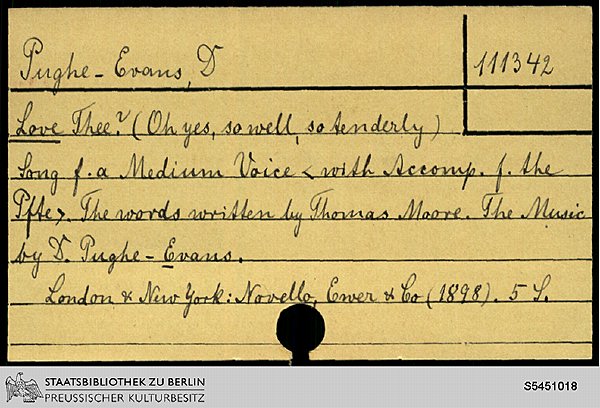 Pughe-Evans, D
111342
Love Thee? (Oh yes, so well, so tenderly)
Song f. a Medium Voice < with Accomp. f. the
Pfte >. The words written by Thomas Moore. The Music
by D. Pughe-Evans.
London & New York: Novello, Ewer & Co (1898). 5 S.
STAATSBIBLIOTHEK ZU BERLIN
PREUSSISCHER KULTURBESITZ
S5451018